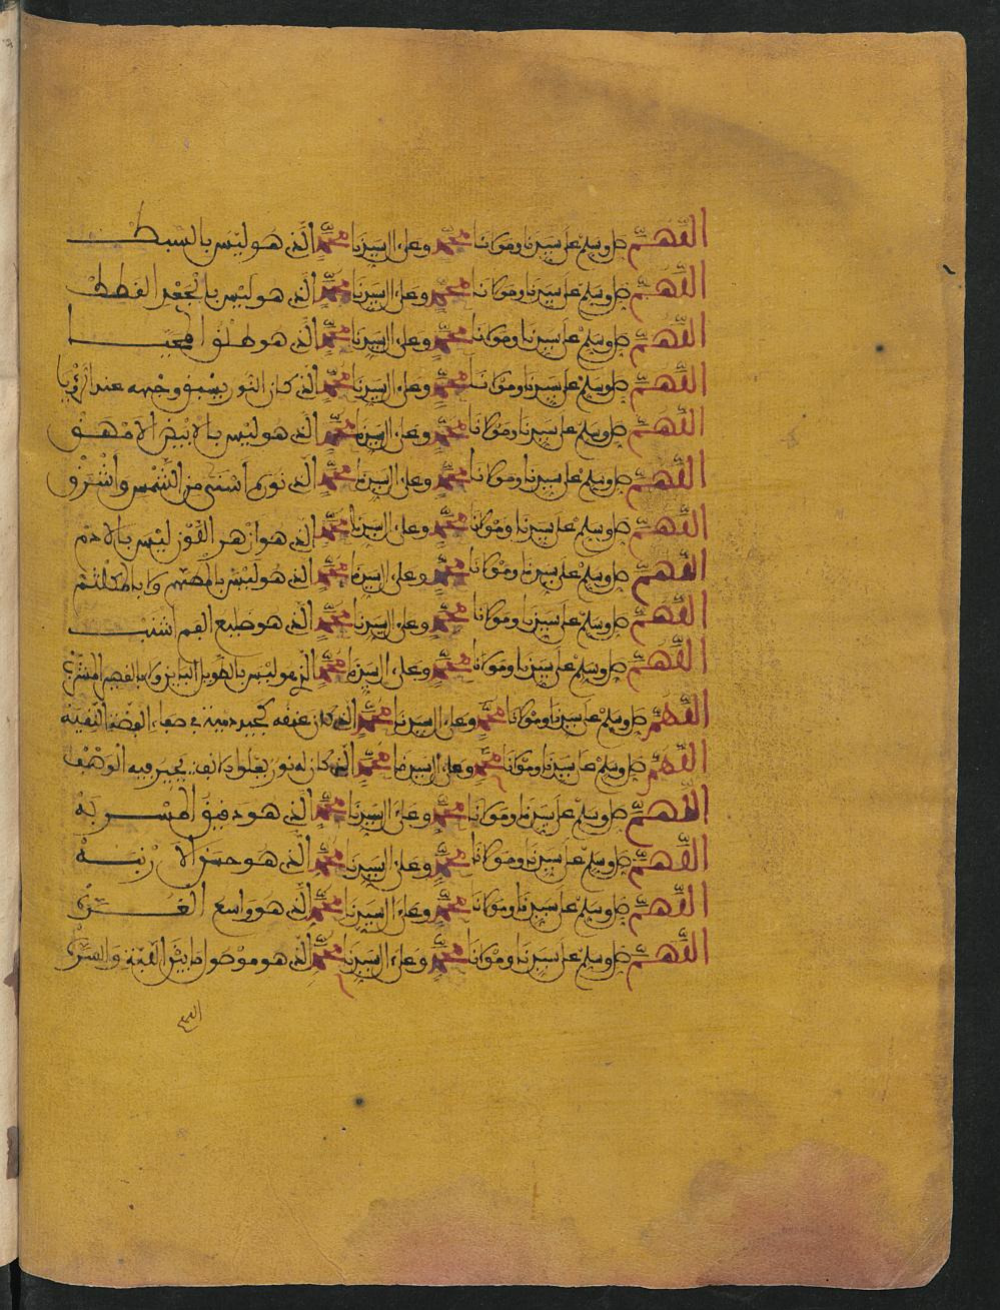 اللهم صل وسلم على سيدنا ومولانا محمد وعلى ال سيدنا محمد الذي هو ليس بالسبط
اللهم صل وسلم على سيدنا ومولانا محمد وعلى ال سيدنا محمد الذي هو ليس بالجعد القطط
اللهم صل وسلم على سيدنا ومولانا محمد وعلى ال سيدنا محمد الذي هو طلق المحيا
اللهم صل وسلم على سيدنا ومولانا محمد وعلى ال سيدنا محمد الذي كان النور يسبق وجهه عند الرؤيا
اللهم صل وسلم على سيدنا ومولانا محمد وعلى ال سيدنا محمد الذي هو ليس بالابيض الامهق
اللهم صل وسلم على سيدنا ومولانا محمد وعلى ال سيدنا محمد الذي نوره اسنى من الشمس واشرق
اللهم صل وسلم على سيدنا ومولانا محمد وعلى ال سيدنا محمد الذي هو ازهر اللون ليس بالادم
اللهم صل وسلم على سيدنا ومولانا محمد وعلى ال سيدنا محمد الذي هو ليس بالمطهم ولا بالمكلثم
اللهم صل وسلم على سيدنا ومولانا محمد وعلى ال سيدنا محمد الذي هو ضليع الفم اشنب
اللهم صل وسلم على سيدنا ومولانا محمد وعلى ال سيدنا محمد الذي هو ليس بالطويل الباين ولا بالقصير
اللهم صل وسلم على سيدنا ومولانا محمد وعلى ال سيدنا محمد الذي كان عنقه كجيد دمية في صفاء الفضة النقية
اللهم صل وسلم على سيدنا ومولانا محمد وعلى ال سيدنا محمد الذي كان له نور يعلوه يحير فيه الوصف
اللهم صل وسلم على سيدنا ومولانا محمد وعلى ال سيدنا محمد الذي هو دقيق المسربة
اللهم صل وسلم على سيدنا ومولانا محمد وعلى ال سيدنا محمد الذي هو حسن الارنبة
اللهم صل وسلم على سيدنا ومولانا محمد وعلى ال سيدنا محمد الذي هو واسع
اللهم صل وسلم على سيدنا ومولانا محمد وعلى ال سيدنا محمد الذي هو موصول ما بين اللبة والسرة
اللهم